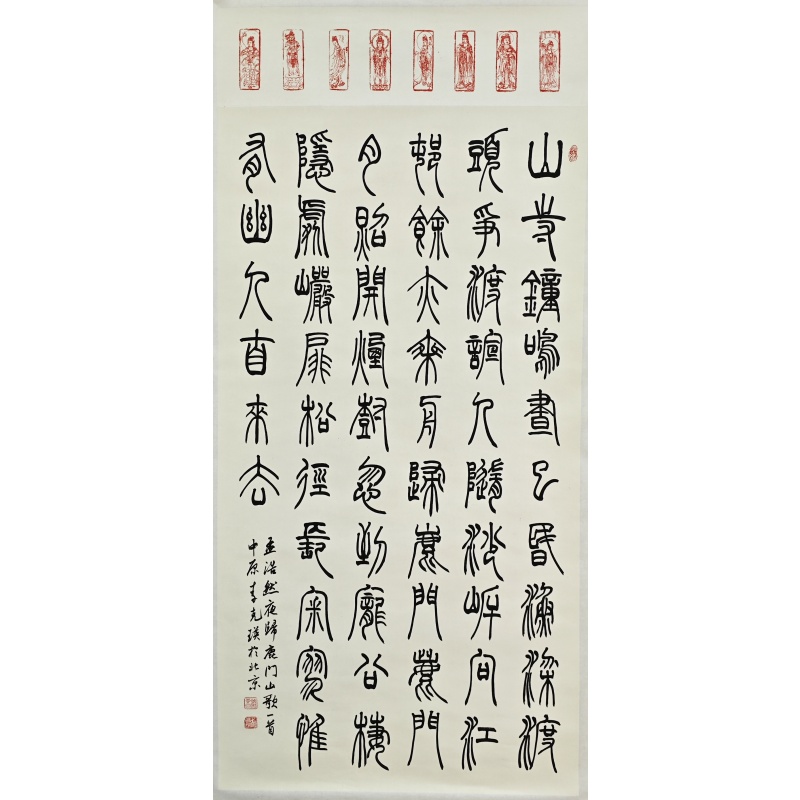 山寺鐘鳴晝已昏漁梁渡
頭爭渡諠人隨沙岸向江
邨餘亦乘舟歸鹿門鹿門
月照開煙樹忽到龐公棲
隱處巖扉松徑長寂寥惟
有幽人自來去
孟浩然夜歸鹿門山歌一首
中原李克瑛於北京